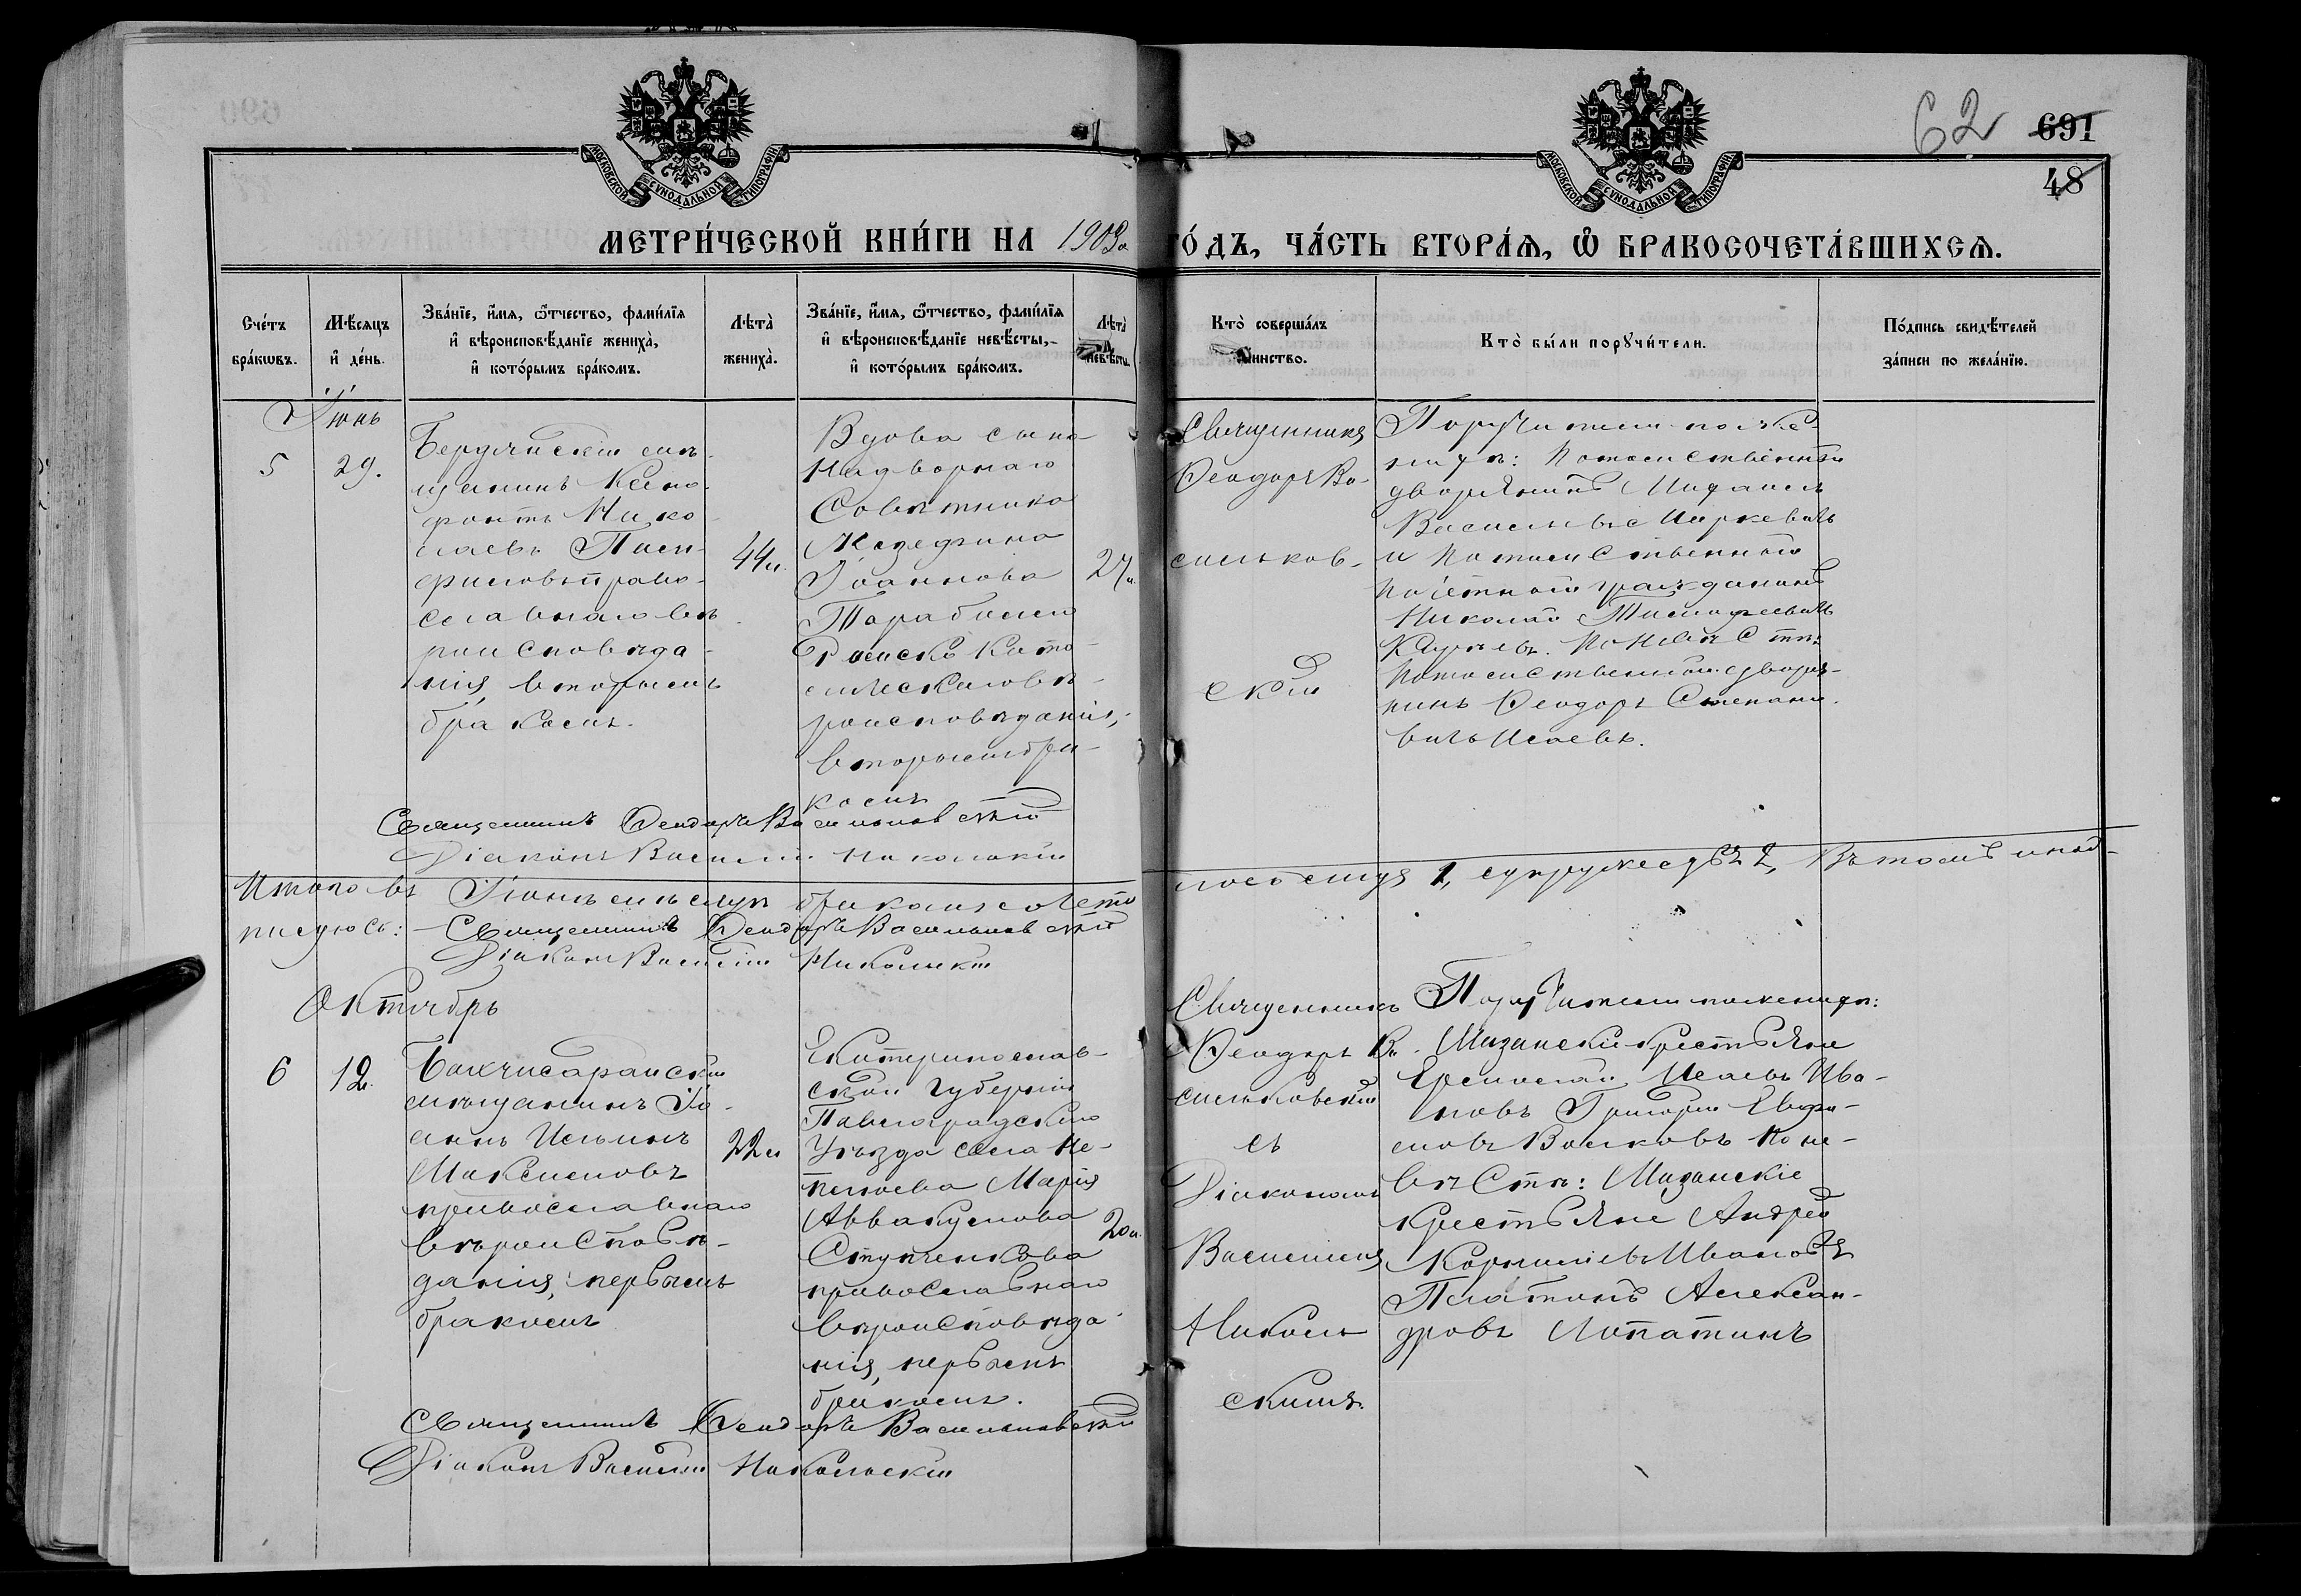 62
691
48
МОСКОВСКОЙ СУНОДАЛЬНОЙ ТИПОГРАФІИ
МОСКОВСКОЙ СУНОДАЛЬНОЙ ТИПОГРАФІИ
МЕТРИ́ЧЕСКОЙ КНИ́ГИ НА 1903 го́дъ, ЧА́СТЬ ВТОРА́Я, Ѿ БРАКОСОЧЕТА́ВШИХСЯ.
Сче́тъ
бра́кѡвъ.
Мѣ́сяцъ
и҆ де́нь.
Зва́нїе, и҆́мя, ѻ҆́тчество, фами́лїя
и҆ вѣроисповѣ́данїе женихà,
и҆ кото́рымъ бра́комъ.
Лѣтà
женихà.
Зва́нїе, и҆́мя, ѻ҆́тчество, фами́лїя
и҆ вѣроисповѣ́данїе невѣ́сты,
и҆ кото́рымъ бра́комъ.
Лѣтà
невѣ́сты.
Ктò соверша́лъ
таинство.
Ктò бы́ли порꙋчи́тели.
По́дпись свидѣ́телей
за́писи по жела́нїю.
Іюнь
5
29.
Бердянскій мѣ-
щанинъ Ксено-
фонтъ Нико-
лаевъ
право-
славнаго вѣ-
роисповѣда-
нія, вторымъ
бракомъ.
44 л.
Вдова сына
Надворнаго
Совѣтника
Жозефина
Іоаннова
Тарабина
Римско Като-
лическаго вѣ-
роисповѣданія,
вторымъ бра-
комъ
27 л.
Священникъ
Ѳеодоръ Ва-
сильков-
скій
Поручители по же-
нихѣ: Потомственный
дворянинъ Михаилъ
Васильевъ Маркевичъ
и Потомственный
почетный гражданинъ
Николай Тимофеевичъ
по невѣстѣ:
Потомственный дворя-
нинъ Ѳеодоръ Степано-
вичъ Исаевъ.
Священникъ Ѳеодоръ Васильковскій
Діаконъ Василій Никольскій
Итого въ Іюнѣ мѣсяцѣ бракомъ сочета-
лось лицъ 1, супружествъ 2, въ томъ и под-
писуюсь: Священникъ Ѳеодоръ Васильковскій
Діаконъ Василій Никольскій
Октябрь
6
12.
Бахчисарайскій
мѣщанинъ Іо-
аннъ Ильинъ
Максимовъ
православнаго
вѣроисповѣ-
данія, первымъ
бракомъ
22 л
Екатеринослав-
ской Губерніи
Павлоградскаго
Уѣзда села
Марія
Аввакумова
Ступченкова
православнаго
вѣроисповѣда-
нія, первымъ
бракомъ.
20 л.
Священникъ
Ѳеодоръ Ва-
сильковскій
съ
Діакономъ
Василіемъ
Николь
скимъ.
Поручители по женихѣ:
Мазанскіе крестьяне
Ермолай Исаевъ Ива-
новъ Григорій Евфи-
мовъ Волковъ по не-
вѣстѣ: Мазанскіе
крестьяне Андрей
Корниліевъ Ивановъ
Платонъ Алексан-
дровъ Лопатинъ
Священникъ Ѳеодоръ Васильковскій
Діаконъ Василій Никольскій